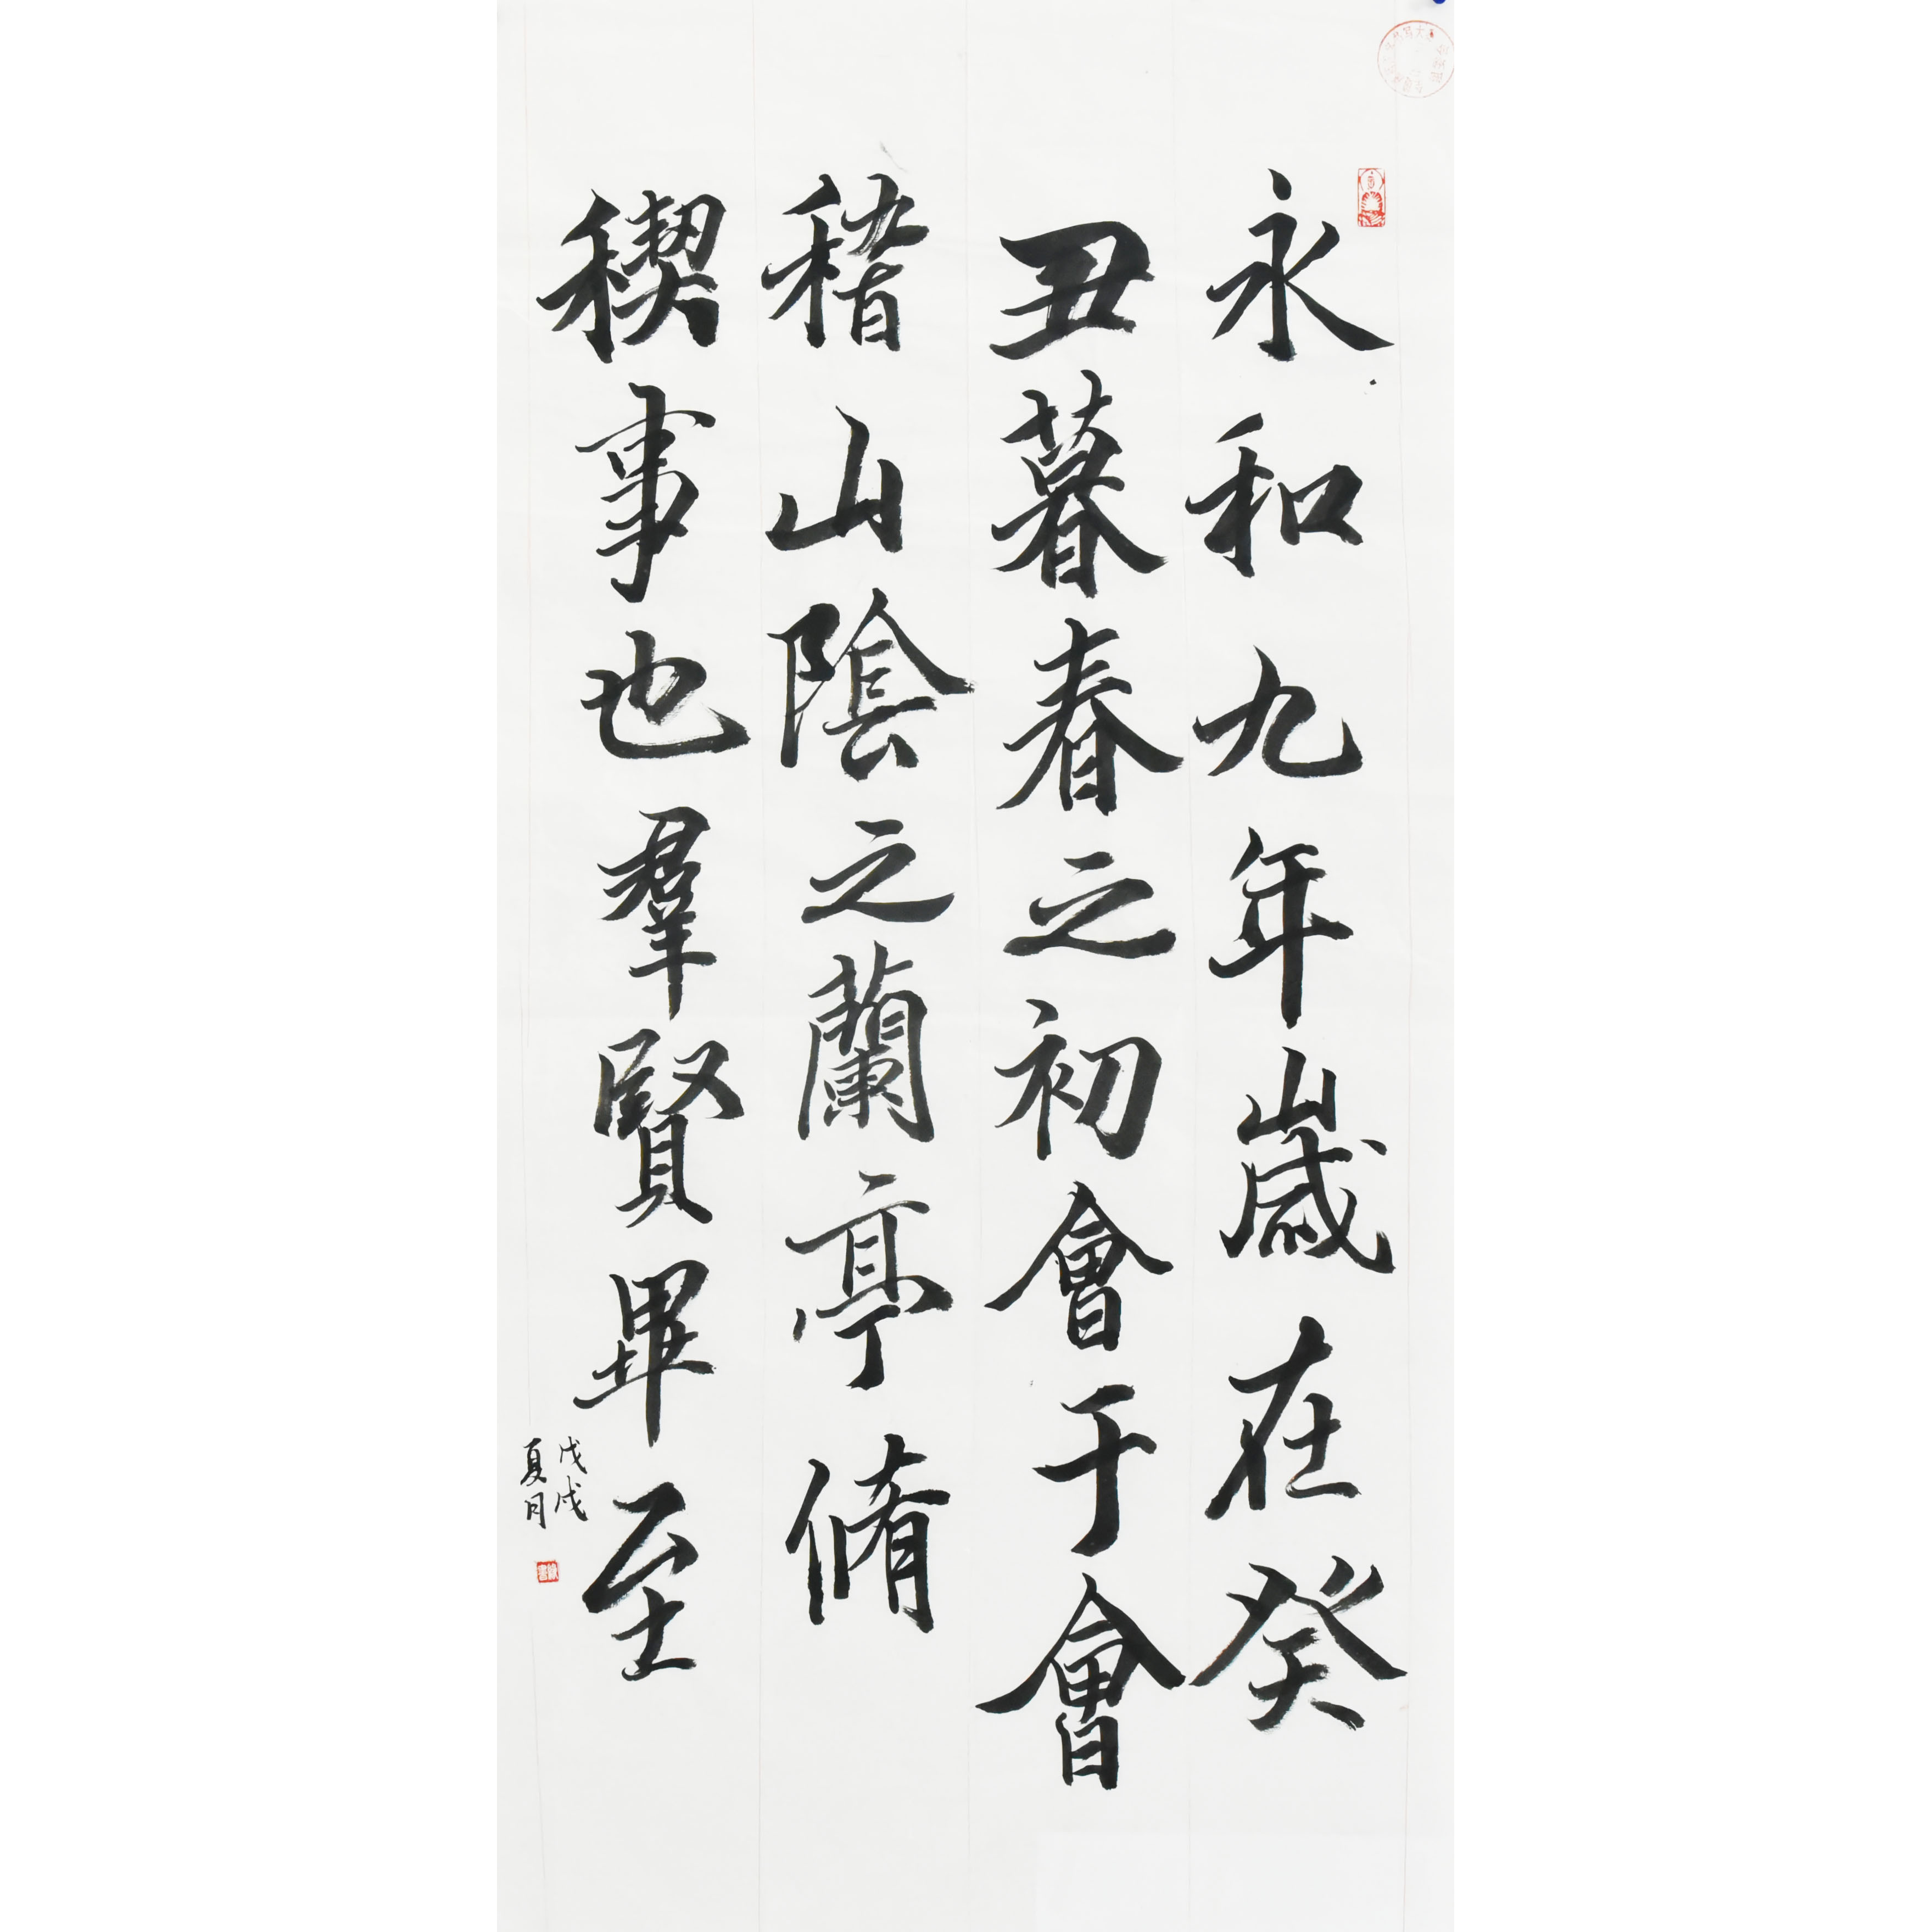 永和九年歲在癸
丑暮春之初會于會
稽山陰之蘭亭脩
稧事也羣賢畢至
戊戌
夏月